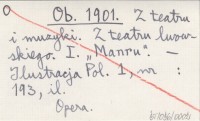 O Ob. 1901. Z teatru
i muzyki. Z teatru lwow
skiego. I. „Manru". —
Ilustracja Pol. 1, nr :
193, il.
Opera.